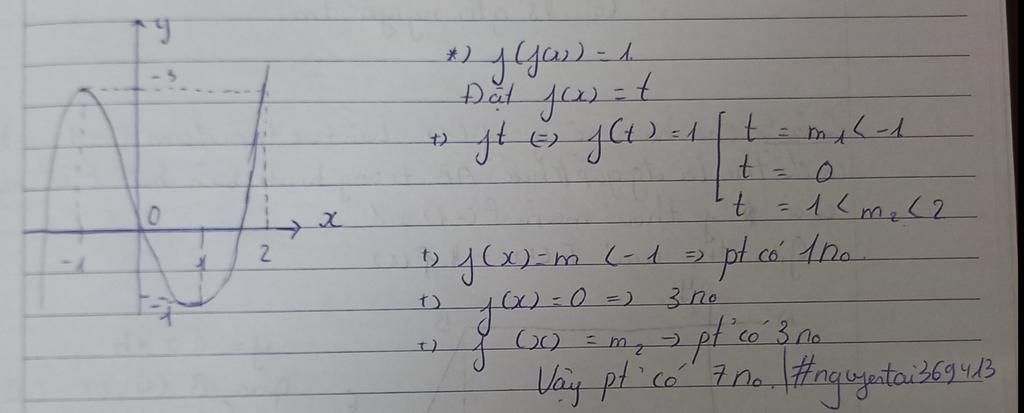 y
-3
0
x
-1
1
2
-1
*) f(f(x)) = 1.
Đặt f(x) = t
+) ft ⇔ f(t) = 1 [ t = m₁ < -1
t = 0
t = 1 < m₂ < 2
+) f(x) = m < -1 ⇒ pt có 1 no.
+) f(x) = 0 ⇒ 3 no
+) f(x) = m₂ → pt có 3 no
Vậy pt có 7 no. | #nguyentai369413